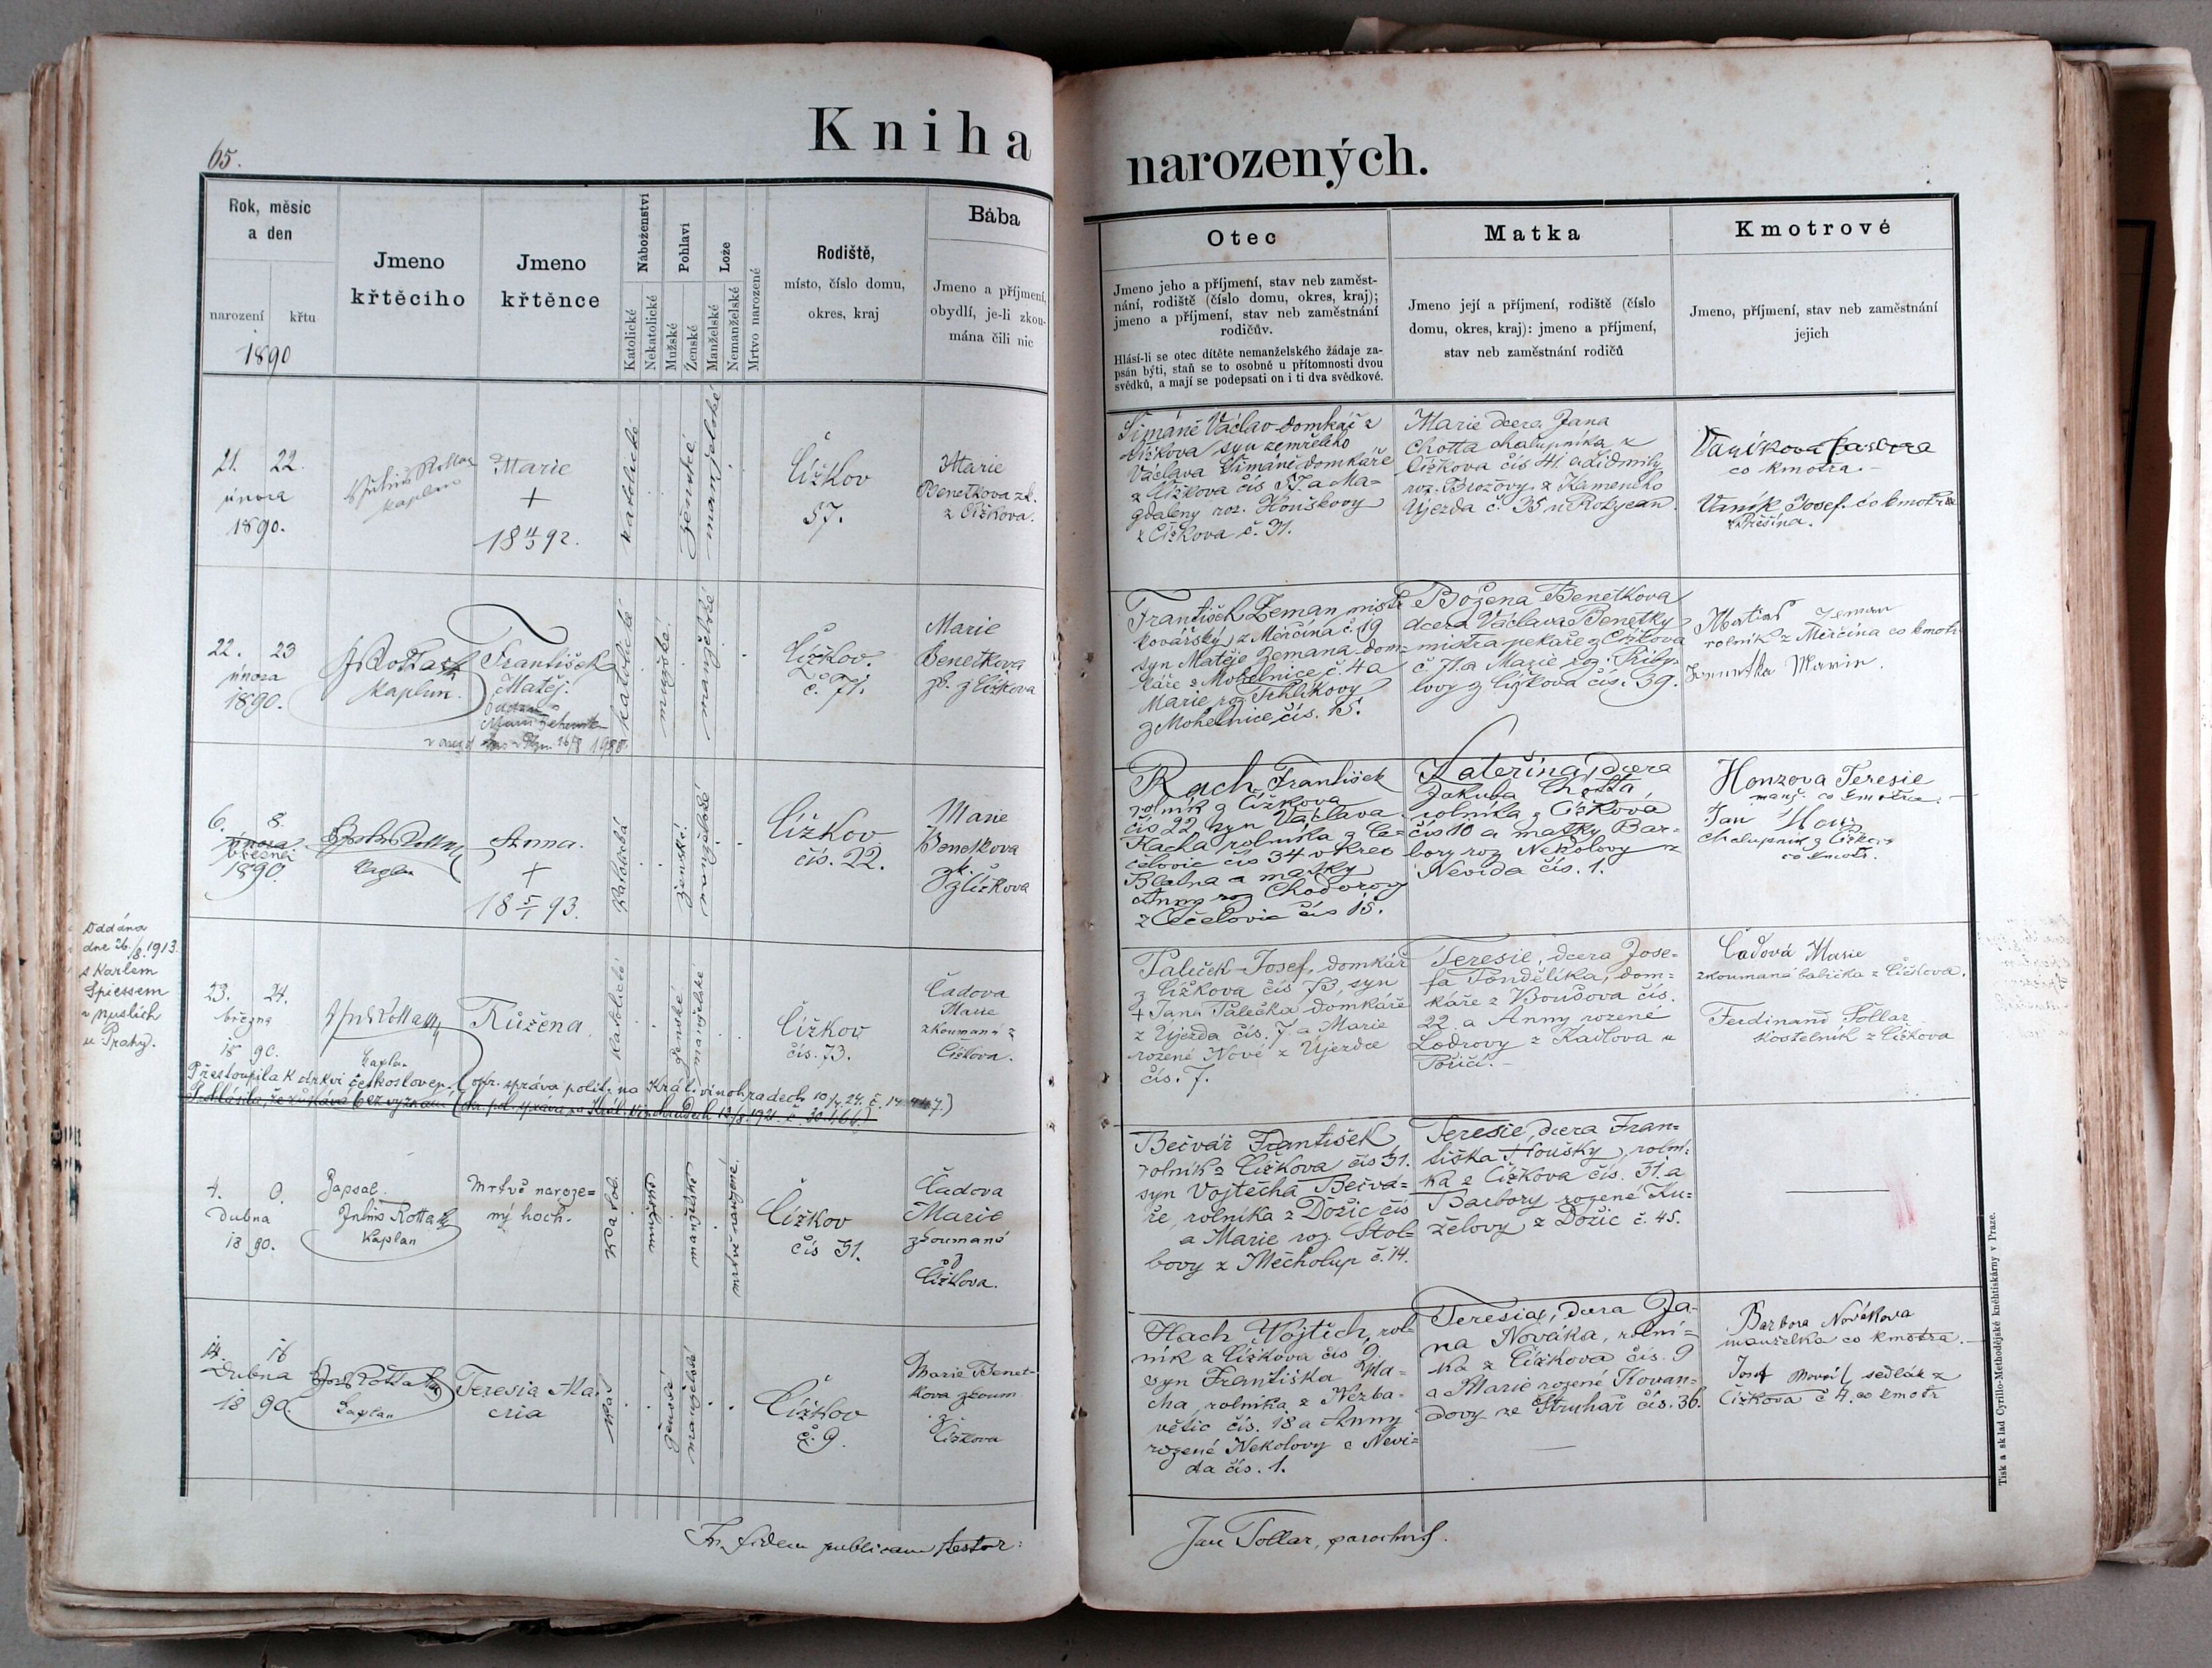 65.
Kniha
narozených.
Rok, měsíc
a den
narození
křtu
1890
Jmeno
křtěciho
Jmeno
křtěnce
Náboženství
Katolické
Nekatolické
Pohlaví
Mužské
Ženské
Lože
Manželské
Nemanželské
Mrtvo narozené
Rodiště,
místo, číslo domu,
okres, kraj
Bába
Jmeno a příjmení,
obydlí, je-li zkou-
mána čili nic
Otec
Jmeno jeho a příjmení, stav neb zaměst-
nání, rodiště (číslo domu, okres, kraj);
jmeno a příjmení, stav neb zaměstnání
rodičův.
Hlásí-li se otec dítěte nemanželského žádaje za-
psán býti, staň se to osobné u přítomnosti dvou
svědků, a mají se podepsati on i ti dva svědkové.
Matka
Jmeno její a příjmení, rodiště (číslo
domu, okres, kraj): jmeno a příjmení,
stav neb zaměstnání rodičů
Kmotrové
Jmeno, příjmení, stav neb zaměstnání
jejich
21. 22.
února
1890.
Julius Rotta
kaplan
Marie
+
18 4/3 92.
katolické
ženské
manželské
Čížkov
57.
Marie
Benetkova zk.
z Čížkova.
Šimáně Václav domkář z
Čížkova syn zemřelého
Václava Šimáně domkáře
z Čížkova čís 57. a Ma-
gdaleny roz. Houškovy
z Čížkova č. 31.
Marie dcera Jana
Chotta chalupníka z
Čížkova čís 41. a Lidmily
roz. Brožovy z Kameného
Újezda č. 35 u Rokycan.
Vaníkova
co kmotra.-
Vaník Josef co kmotr
22. 23
února
1890.
J Rotta
kaplan.
František
Matěj.
katolické
mužské.
manželské
Čížkov.
č. 71.
Marie
Benetkova
zk. z Čížkova
František Zeman mistr
kovářský z Měrčína č. 19
syn Matěje Zemana dom-
káře z Mohelnice č. 4 a
Marie roz.
z Mohelnice čís. 15.
Božena Benetkova
dcera Václava Benetky
mistra pekaře z Čížkova
č. 71. a Marie roz. Přiby-
lovy z Čížkova čís. 39.
Matias Zeman
rolník z Měrčína co kmotr
6. 8.
února
března
1890.
Kaplan
Anna.
+
18 5/1 93.
katolické
ženské.
manželské
Čížkov
čís. 22.
Marie
Benetkova
zk.
z Čížkova
Rach František
rolník z Čížkova
čís 22 syn Václava
Racha rolníka z Če-
čelovic čís 34 v kres
Blatna a matky
Anny roz Chodorovy
z Čečelovic čís 15.
Kateřina, dcera
Jakuba Chotta,
rolníka z Čížkova
čís 10 a matky Bar-
bory roz Nekolovy z
Nevida čís. 1.
Honzova Teresie
manž. co kmotra.
Jan
chalupník z Čížkova
co kmotr.
Oddána
dne 26./8. 1913.
s Karlem
Spiessem
v Nuslích
u Prahy.
23. 24.
března
18 90.
Kaplan
Růžena.
katolické
ženské
manželské
Čížkov
čís. 73.
Čadova
Marie
zkoumaná z
Čížkova.
Paleček Josef, domkář
z Čížkova čís 73, syn
+ Jana Palečka domkáře
z Újezda čís. 7 a Marie
rozené Nové z Újezda
čís. 7.
Teresie, dcera Jose-
fa Tondělíka, dom-
káře z Boušova čís.
22. a Anny rozené
Lodrovy z
Poříčí.-
Čadová Marie
zkoumaná babička z Čížkova.
Ferdinand Šollar
kostelník z Čížkova
Přestoupila k církvi českosloven. (okr. správa polit. na Král. vinohradech
4. 0.
Dubna
18 90.
Zapsal.
Julius Rotta
kaplan
Mrtvě naroze-
ný hoch.
katol.
mužské
manželské
mrtvě narozené.
Čížkov
čís 31.
Čadova
Marie
zkoumaná
z
Čížkova.
Bečvář František
rolník z Čížkova čís 31.
syn Vojtěcha Bečvá-
ře, rolníka z Dožic čís
a Marie roz. Stol-
bovy z Měcholup č. 14.
Teresie, dcera Fran-
tiška Houšky, rolní-
ka z Čížkova čís. 31. a
Barbory rozené Ku-
želovy z Dožic č. 45.
14. 16
Dubna
18 90.
Kaplan
Teresia Ma-
cria
kat
ženské
manželské
Čížkov
č. 9.
Marie Benet-
kova zkoum
z
Čížkova
Hach Vojtěch, rol-
ník z Čížkova čís 9.
syn Františka Ha-
cha, rolníka z Nezba-
větic čís. 18 a Anny
rozené Nekolovy z Nevi-
da čís. 1.
Teresia, dcera Ja-
na Nováka, rolní-
ka z Čížkova čís. 9
a Marie rozené Kovan-
dovy ze Struhař čís. 36.
Barbora Novákova
manželka co kmotra.
Josef sedlák z
Čížkova č 4. co kmotr
In fidem publicam testor:
Jan Tollar, parochus.
Tisk a sklad Cyrillo-Methodějské kněhtiskárny v Praze.